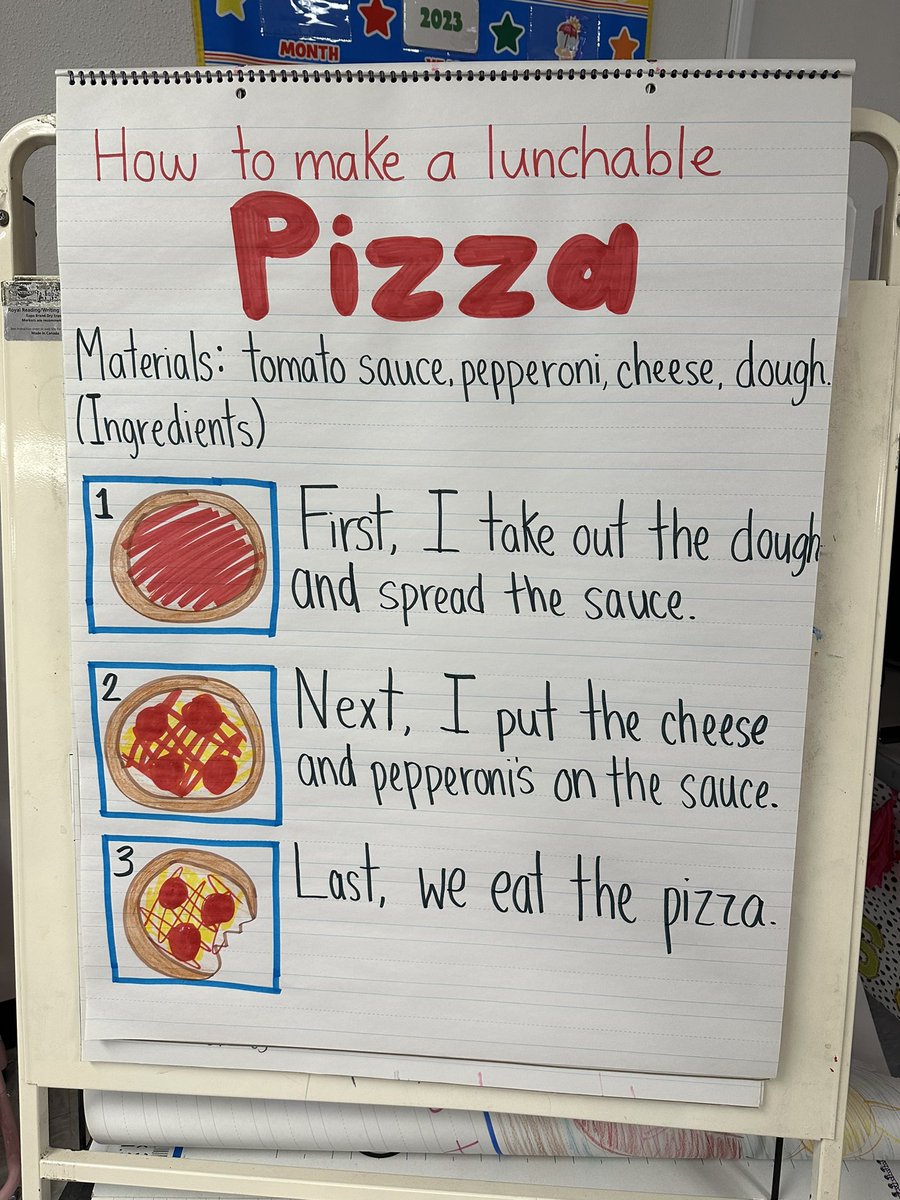 MONTH
2023
How to make a lunchable
Pizza
Materials: tomato sauce, pepperoni, cheese, dough.
(Ingredients)
1
First, I take out the dough
and spread the sauce.
2
Next, I put the cheese
and pepperoni's on the sauce.
3
Last, we eat the pizza.
Royal Reading/Writing
Made in Canada